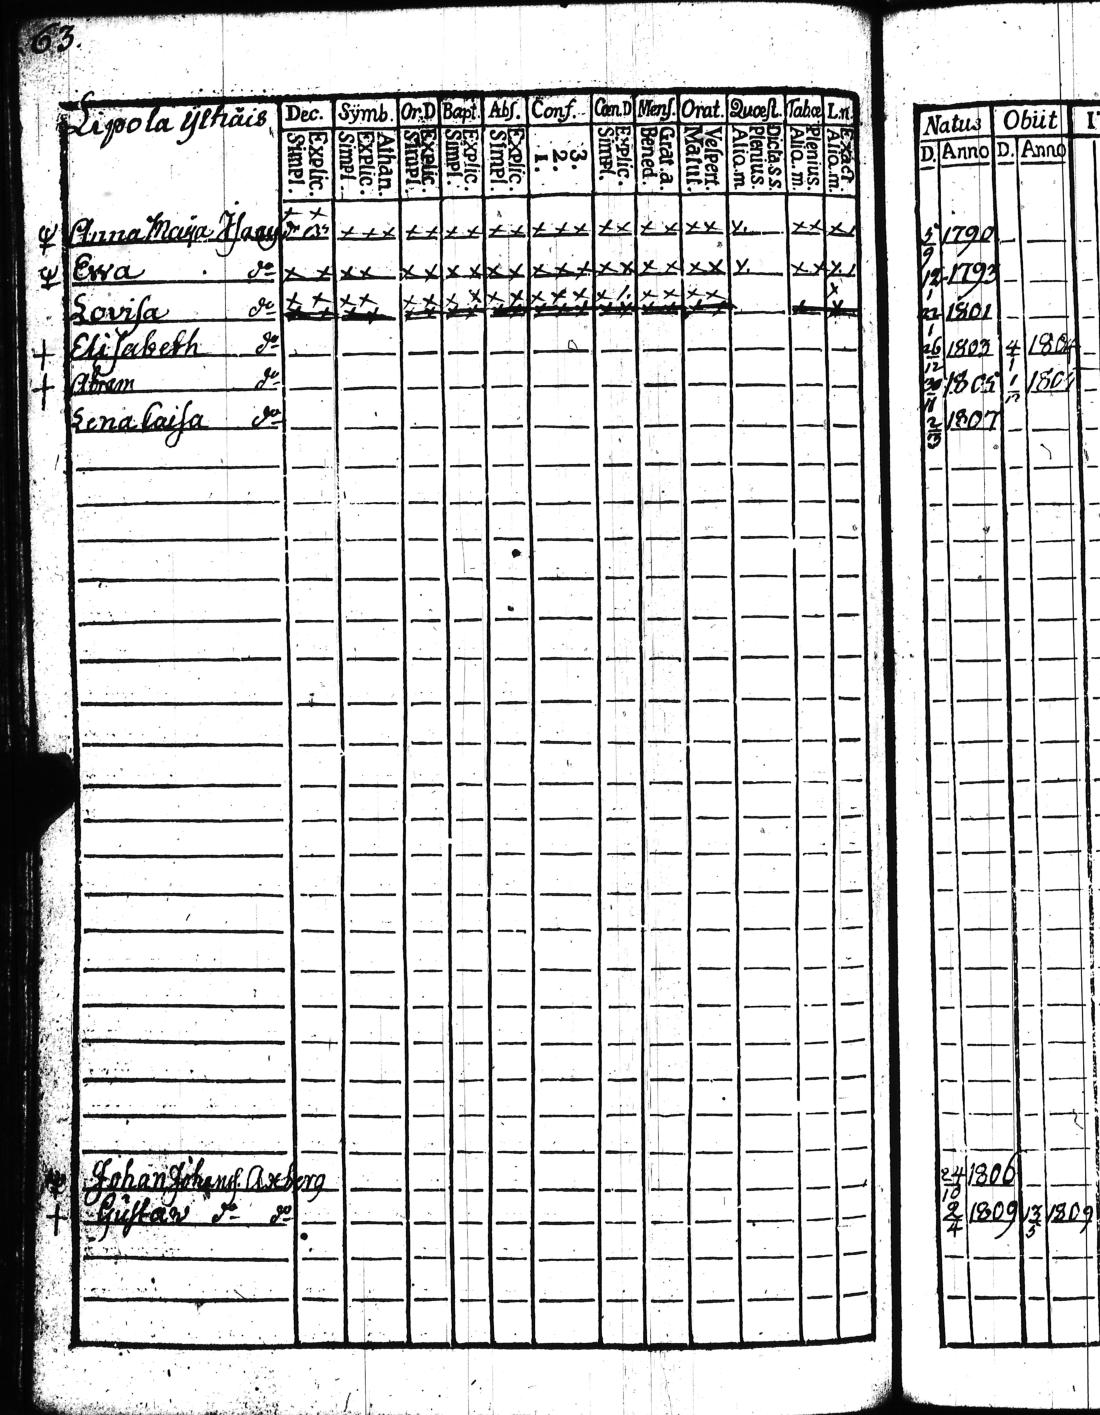 63.
Lipola ÿlihäis Dec. Sÿmb. Or.D Bapt. Abſ. Conf. Cœn.D Menſ. Orat. Quœſt. Tabœ L.n.
Simpl. Explic. Simpl. Explic. Athan. Simpl. Explic. Simpl. Explic. Simpl. Explic. 1. 2. 3. Simpl. Explic. Bened. Grat.a. Matut. Veſpert. Alio.m. Plenius. Dicta.s.s. Alio.m. Plenius. Alio.m. Exact
Natus Obiit
D. Anno D. Anno
Anna Maija 5/9 1790
Ewa do 12/1 1793
Loviſa do 22/1 1801
Eliſabeth do 26/12 1803 4/1 1804
Abram do 30/11 1805
Lena Caiſa do 2/3 1807
Johan Johanſ. Axberg 24/10 1806
Guſtaw do do 2/4 1809 13/5 1809